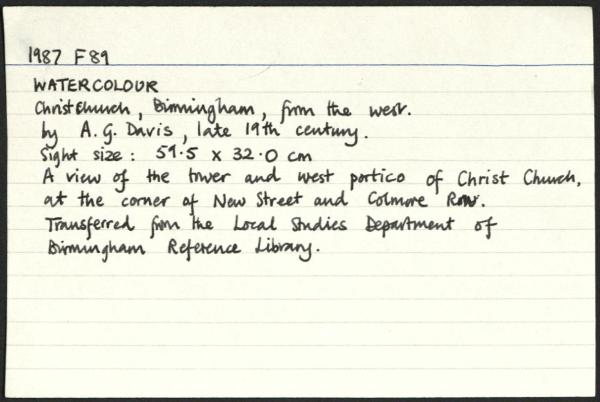 1987 F89
WATERCOLOUR
Christchurch, Birmingham, from the west.
by A.G. Davis, late 19th century.
Sight size: 59.5 x 32.0 cm
A view of the tower and west portico of Christ Church,
at the corner of New Street and Colmore Row.
Transferred from the Local Studies Department of
Birmingham Reference Library.